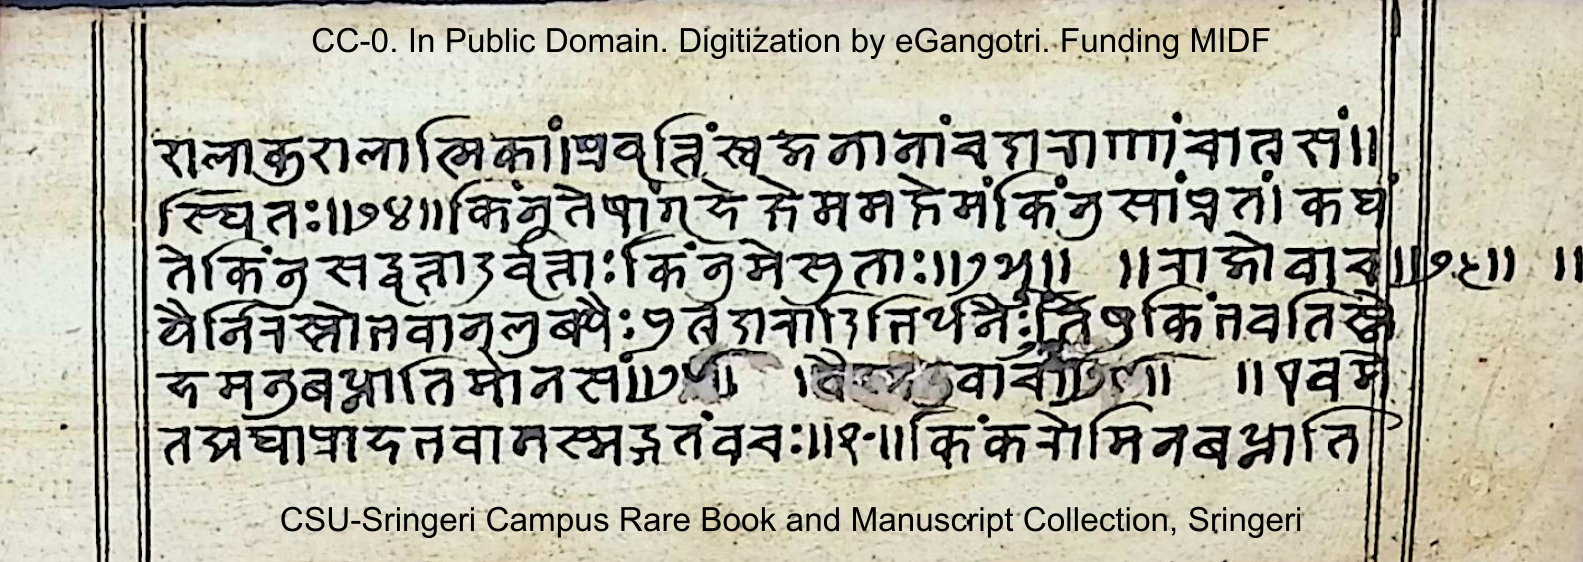 CC-0. In Public Domain. Digitization by eGangotri. Funding MIDF
रालाकुरालात्मिकां।प्रवृत्तिंस्वजनानांचदाराणांचात्रसं॥
स्थितः॥७४॥किंनुतेषांगृहेक्षेममक्षेमंकिंनुसांप्रतं।कथं
तेकिंनुसद्वृत्तादुर्वृत्ताःकिंनुमेसुताः॥७५॥ ॥राजोवाच॥७६॥ ॥
यैर्निरस्तोभवानलुब्धैःपुत्रदारादिभिर्धनैःतेषुकिंभवतिस्ने
हमनुबध्नातिमानसं॥ वाच ॥एवमे
तद्यथाप्राहभवानस्मद्गतंवचः॥किंकरोमिनबध्नाति
CSU-Sringeri Campus Rare Book and Manuscript Collection, Sringeri